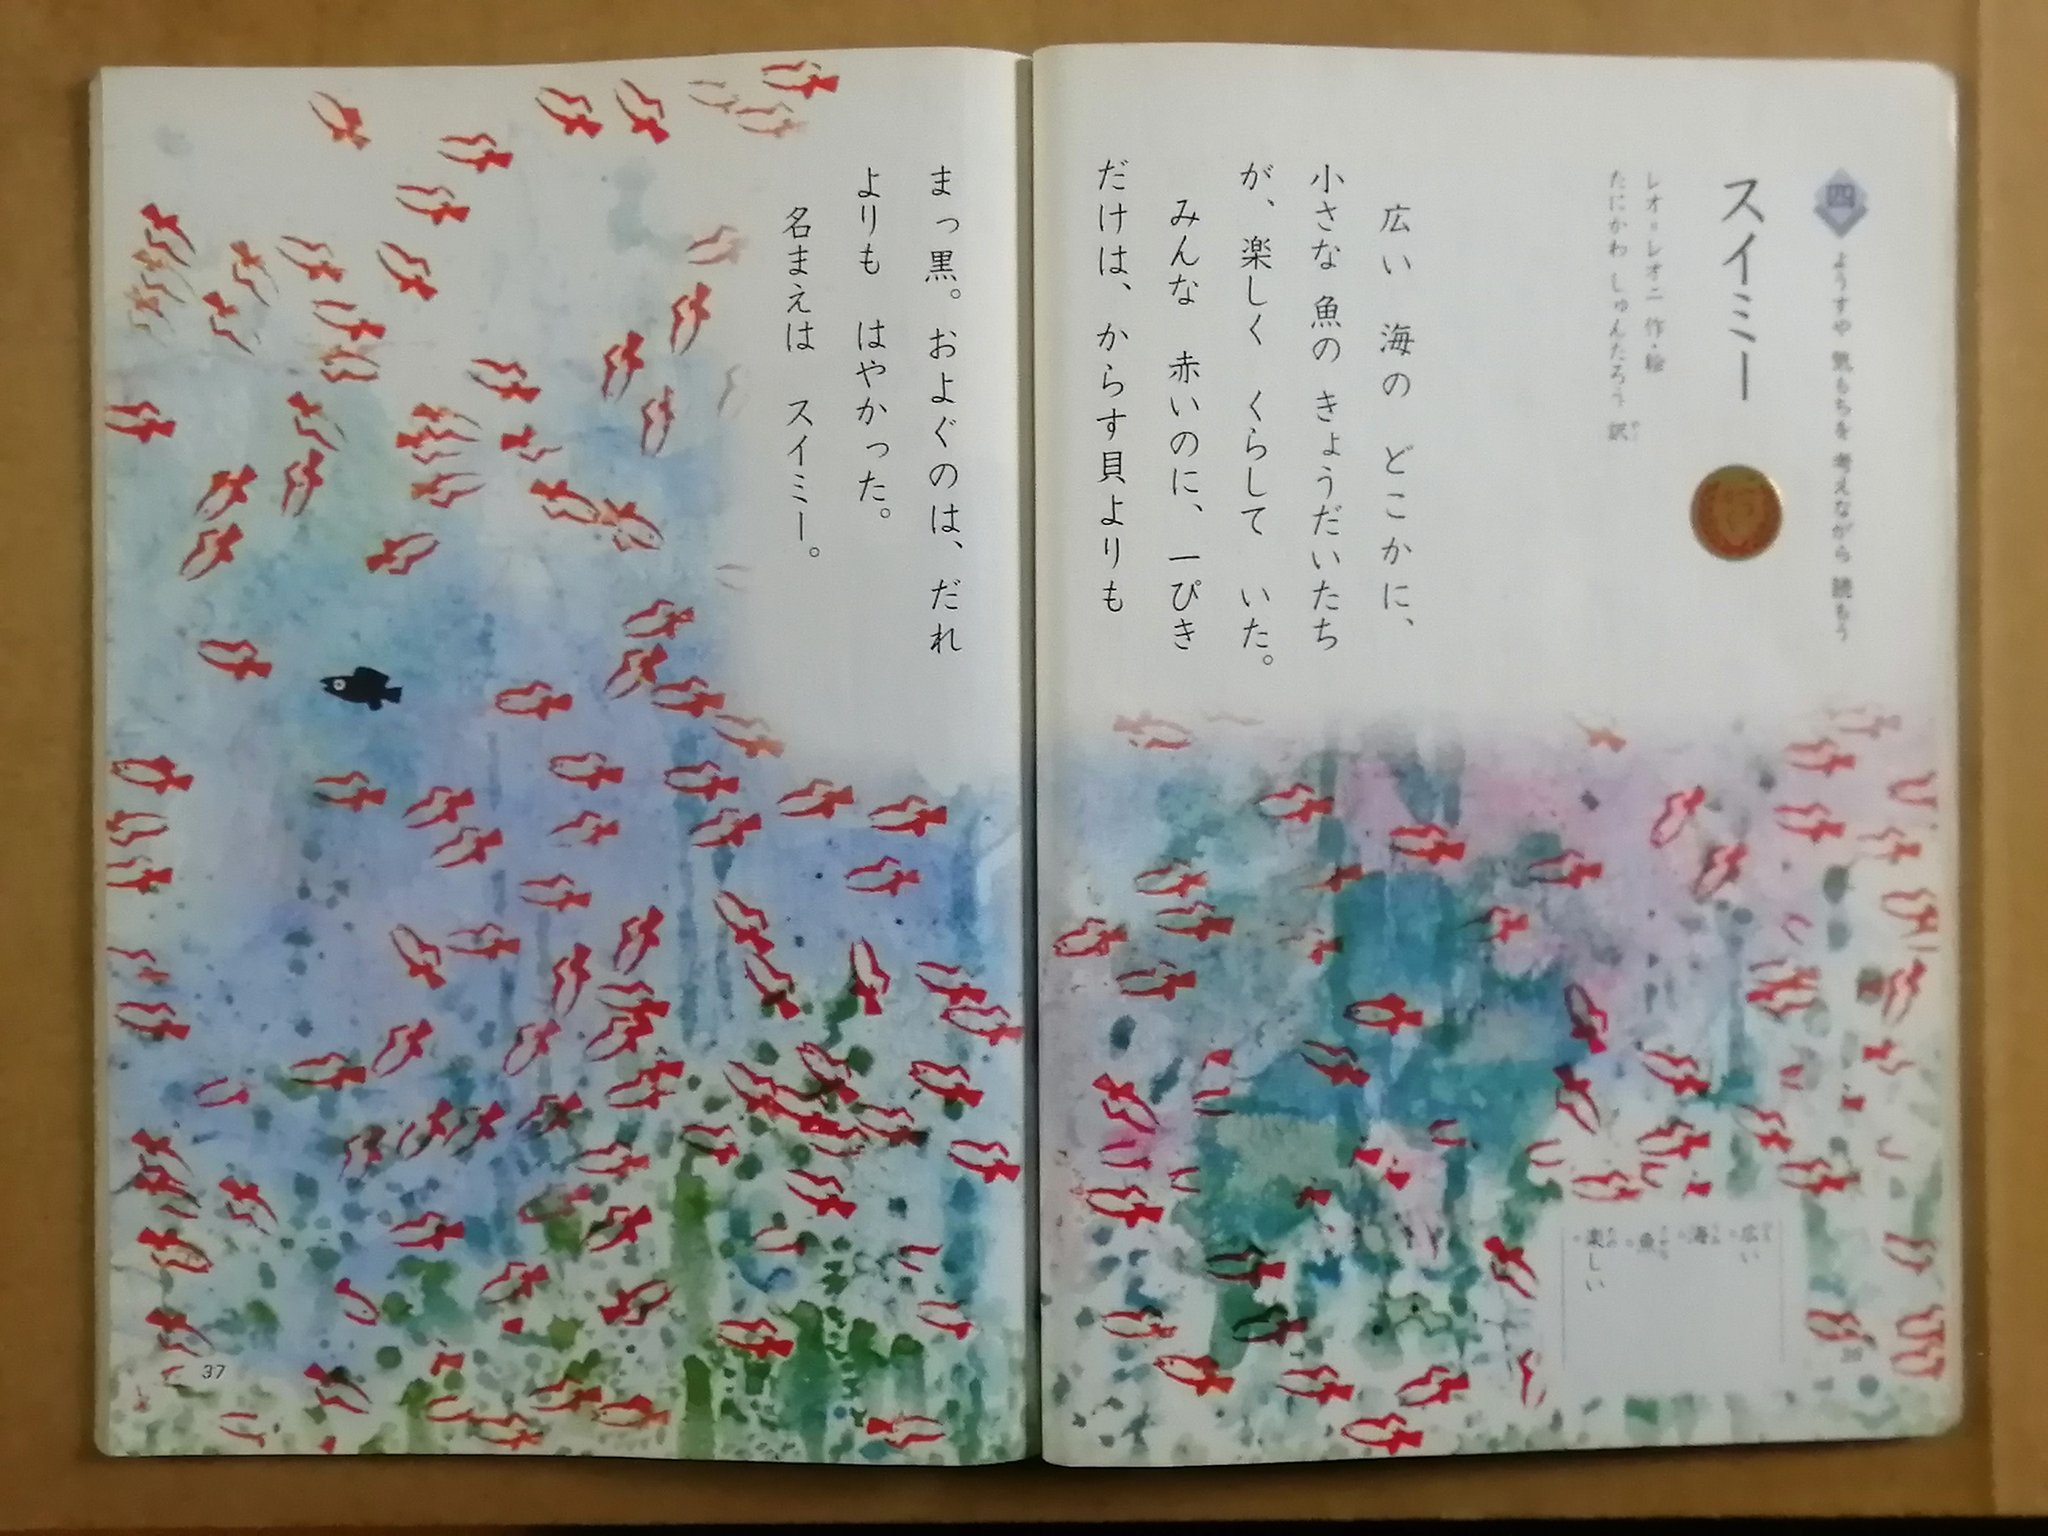 四 ようすや 気もちを 考えながら 読もう
スイミー
レオ=レオニ 作・絵
たにかわ しゅんたろう 訳
広い 海の どこかに、
小さな 魚の きょうだいたち
が、楽しく くらして いた。
みんな 赤いのに、一ぴき
だけは、からす貝よりも
まっ黒。およぐのは、だれ
よりも はやかった。
名まえは スイミー。
広い
海
魚
楽しい
37